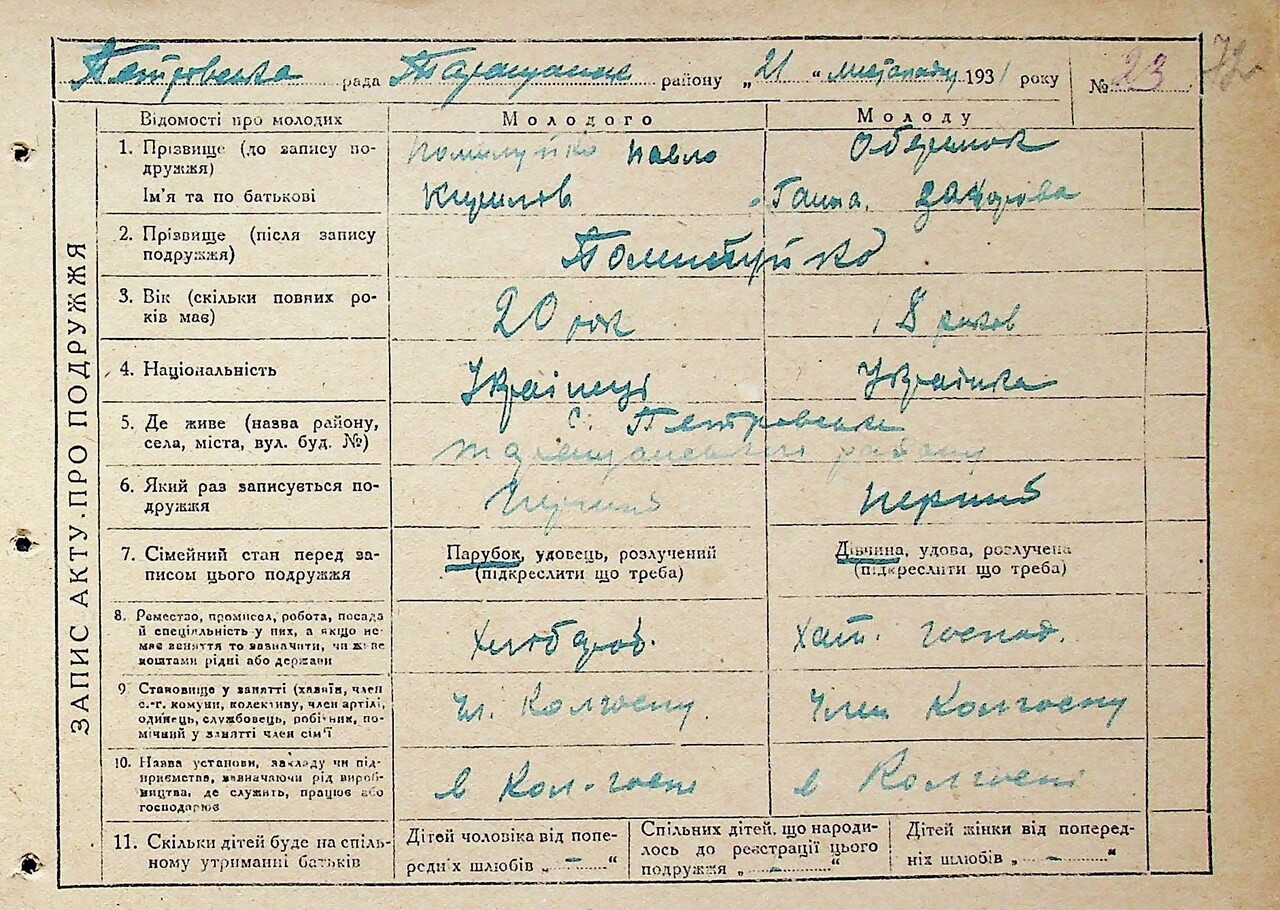 Петровська рада Таращанськ району „21 " листопаду 1931 року № 23
72
ЗАПИС АКТУ ПРО ПОДРУЖЖЯ
Відомості про молодих
Молодого
Молоду
1. Прізвище (до запису по-
дружжя)
Ім'я та по батькові
Помилуйко Павло
Кирилов
Оберемок
Ганна Захарова
2. Прізвище (після запису
подружжя)
Помилуйко
3. Вік (скільки повних ро-
ків має)
20 рок
18 роков
4. Національність
Українці
Українка
5. Де живе (назва району,
села, міста, вул. буд. №)
с. Петровськ
Таращанського району
6. Який раз записується по-
дружжя
Перший
Перший
7. Сімейний стан перед за-
писом цього подружжя
Парубок, удовець, розлучений
(підкреслити що треба)
Дівчина, удова, розлучена
(підкреслити що треба)
8. Ремество, промисел, робота, посада
й спеціяльність у них, а якщо не-
має заняття то зазначити, чи живе
коштами рідні або держави
Хлібороб.
Хат. господ.
9 Становище у занятті (хазяїн, член
с.-г. комуни, колективу, член артілі,
одинець, службовець, робітник, по-
мічний у занятті член сім'ї
Чл. Колгоспу.
Член Колгоспу
10. Назва установи, закладу чи під-
приємства, зазначаючи рід вироб-
ництва, де служить, працює або
господарює
в Кол-госпі
в Колгоспі
11. Скільки дітей буде на спіль-
ному утриманні батьків
Дітей чоловіка від попе-
редніх шлюбів „ – "
Спільних дітей, що народи-
лось до реєстрації цього
подружжя „ – "
Дітей жінки від поперед-
ніх шлюбів „ – "